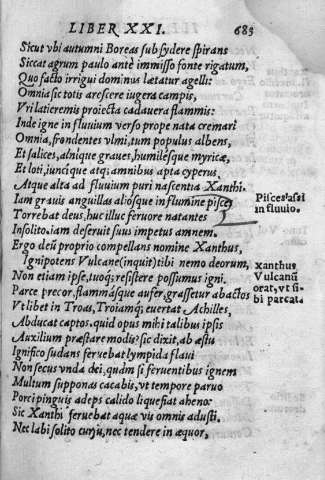 LIBER XXI. 683
Sicut vbi autumni Boreas sub sydere spirans
Siccat agrum paulo antè immisso fonte rigatum,
Quo facto irrigui dominus lætatur agelli:
Omnia sic totis arescere iugera campis,
Vri latieremis proiecta cadauera flammis:
Inde igne in fluuium verso prope nata cremari
Omnia, frondentes vlmi, tum populus albens,
Et salices, alnique graues, humilesque myricæ,
Et loti, iuncique atq; amnibus apta cyperus,
Atque alta ad fluuium puri nascentia Xanthi.
Iam grauis anguillas aliosque in flumine pisces
Pisces assi
Torrebat deus, huc illuc feruore natantes
in fluuio.
Insolito. iam deseruit suus impetus amnem.
Ergo deũ proprio compellans nomine Xanthus,
Ignipotens Vulcane (inquit) tibi nemo deorum,
Xanthus
Non etiam ipse, tuoq; resistere possumus igni.
Vulcanũ
Parce precor, flammásque aufer, grassetur abactos
orat, vt si-
bi parcata
Vt libet in Troas, Troiamq; euertat Achilles,
Abducat captos. quid opus mihi talibus ipsis
Auxilium præstare modis? sic dixit, ab æstu
Ignifico sudans feruebat lympida flaui
Non secus vnda dei, quàm si feruentibus ignem
Multum supponas cacabis, vt tempore paruo
Porci pinguis adeps calido liquefiat aheno:
Sic Xanthi feruebat aquæ vis omnis adusti.
Nec labi solito cursu, nec tendere in æquor,